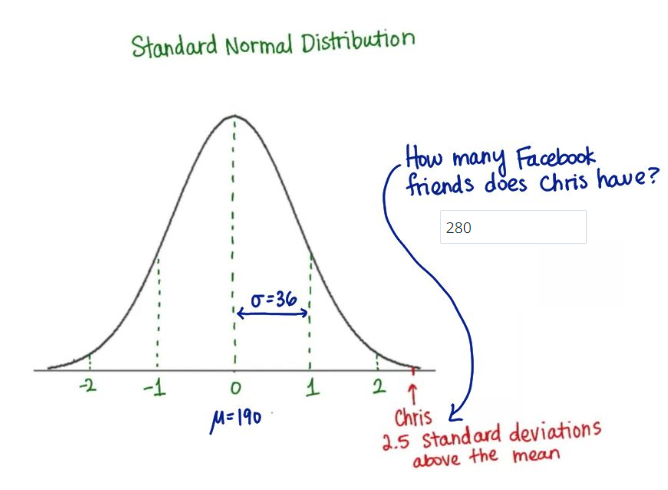 Standard Normal Distribution
How many Facebook
friends does Chris have?
280
σ=36
-2 -1 0 1 2
μ=190
Chris
2.5 standard deviations
above the mean